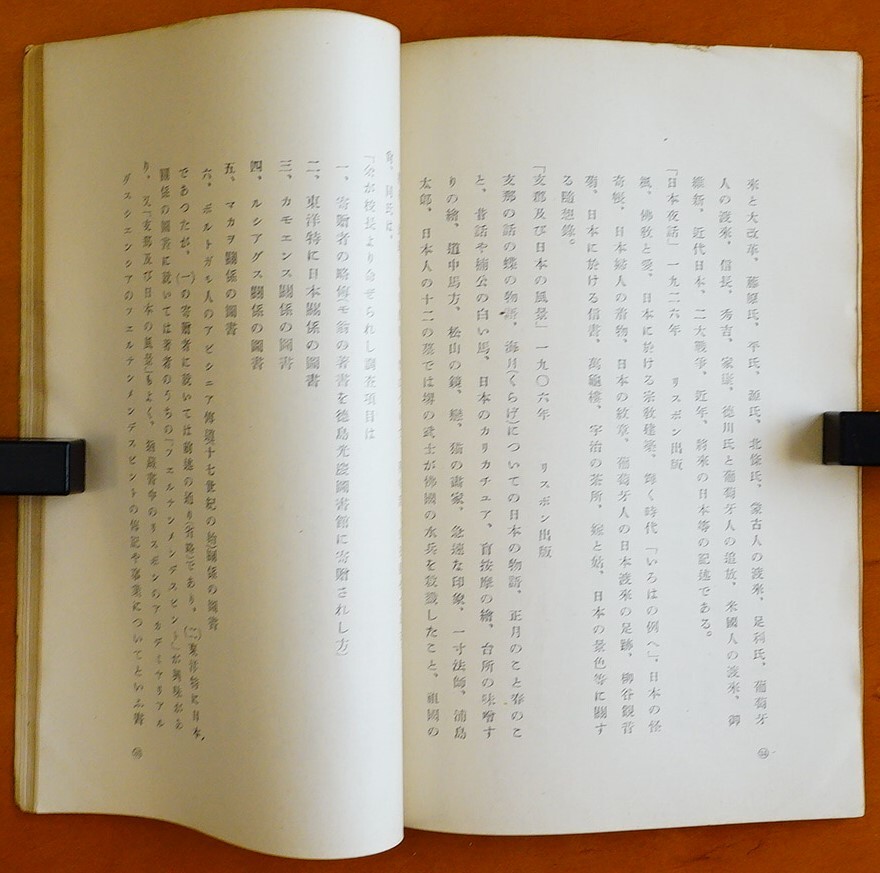 来と大改革、藤原氏、平氏、源氏、北條氏、蒙古人の渡来、足利氏、葡萄牙
人の渡来、信長、秀吉、家康、德川氏と葡萄牙人の追放、米國人の渡来、御
維新、近代日本、二大戰爭、近年、將來の日本等の記述である。
「日本夜話」一九二六年 リスボン出版
佛敎と愛、日本に於ける宗敎建築、輝く時代「いろはの例へ」、日本の怪
奇帳、日本婦人の着物、日本の紋章、葡萄牙人の日本渡来の足跡、柳谷觀音
菊、日本に於ける信書、萬龜樓、宇治の茶所、嫁と姑、日本の景色等に關す
る隨想錄。
「支那及び日本の風景」一九〇六年 リスボン出版
支那の話の蝶の物語、海月(くらげ)についての日本の物語、正月のこと春のこ
と、昔話や楠公の白い馬、日本のカリカチュア、盲按摩の繪、台所の味噌す
りの繪、道中馬方、松山の鏡、戀、猫の畫家、急速な印象、一寸法師、浦島
太郎、日本人の十二の墓では堺の武士が佛國の水兵を殺戮したこと、祖國の
㊴
尙、同氏に、
「余が校長より命ぜられし調査項目は
一、寄贈者の略傳(モ翁の著書を德島光慶圖書館に寄贈されし方)
二、東洋特に日本關係の圖書
三、カモエンス關係の圖書
四、ルシアダス關係の圖書
五、マカヲ關係の圖書
六、ポルトガル人のアビシニア傳道十七世紀の始)關係の圖書
であつたが、(一)の寄贈者に就いては前述の通り(省略)であり、(二)東洋特に日本、
關係の圖書に就いては著者のうちの『フエルナンメンデスピント』が興味があ
り、又『支那及び日本の風景』もよく、
リスボンのアカデミヤリアル
ダスシエンシアのフエルナンメンデスピントの傳記や事業についてといふ書